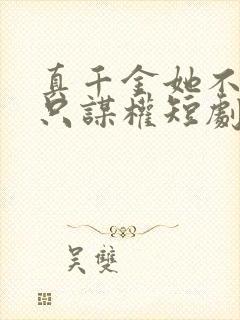 真千金她不
只謀權短劇
吳雙